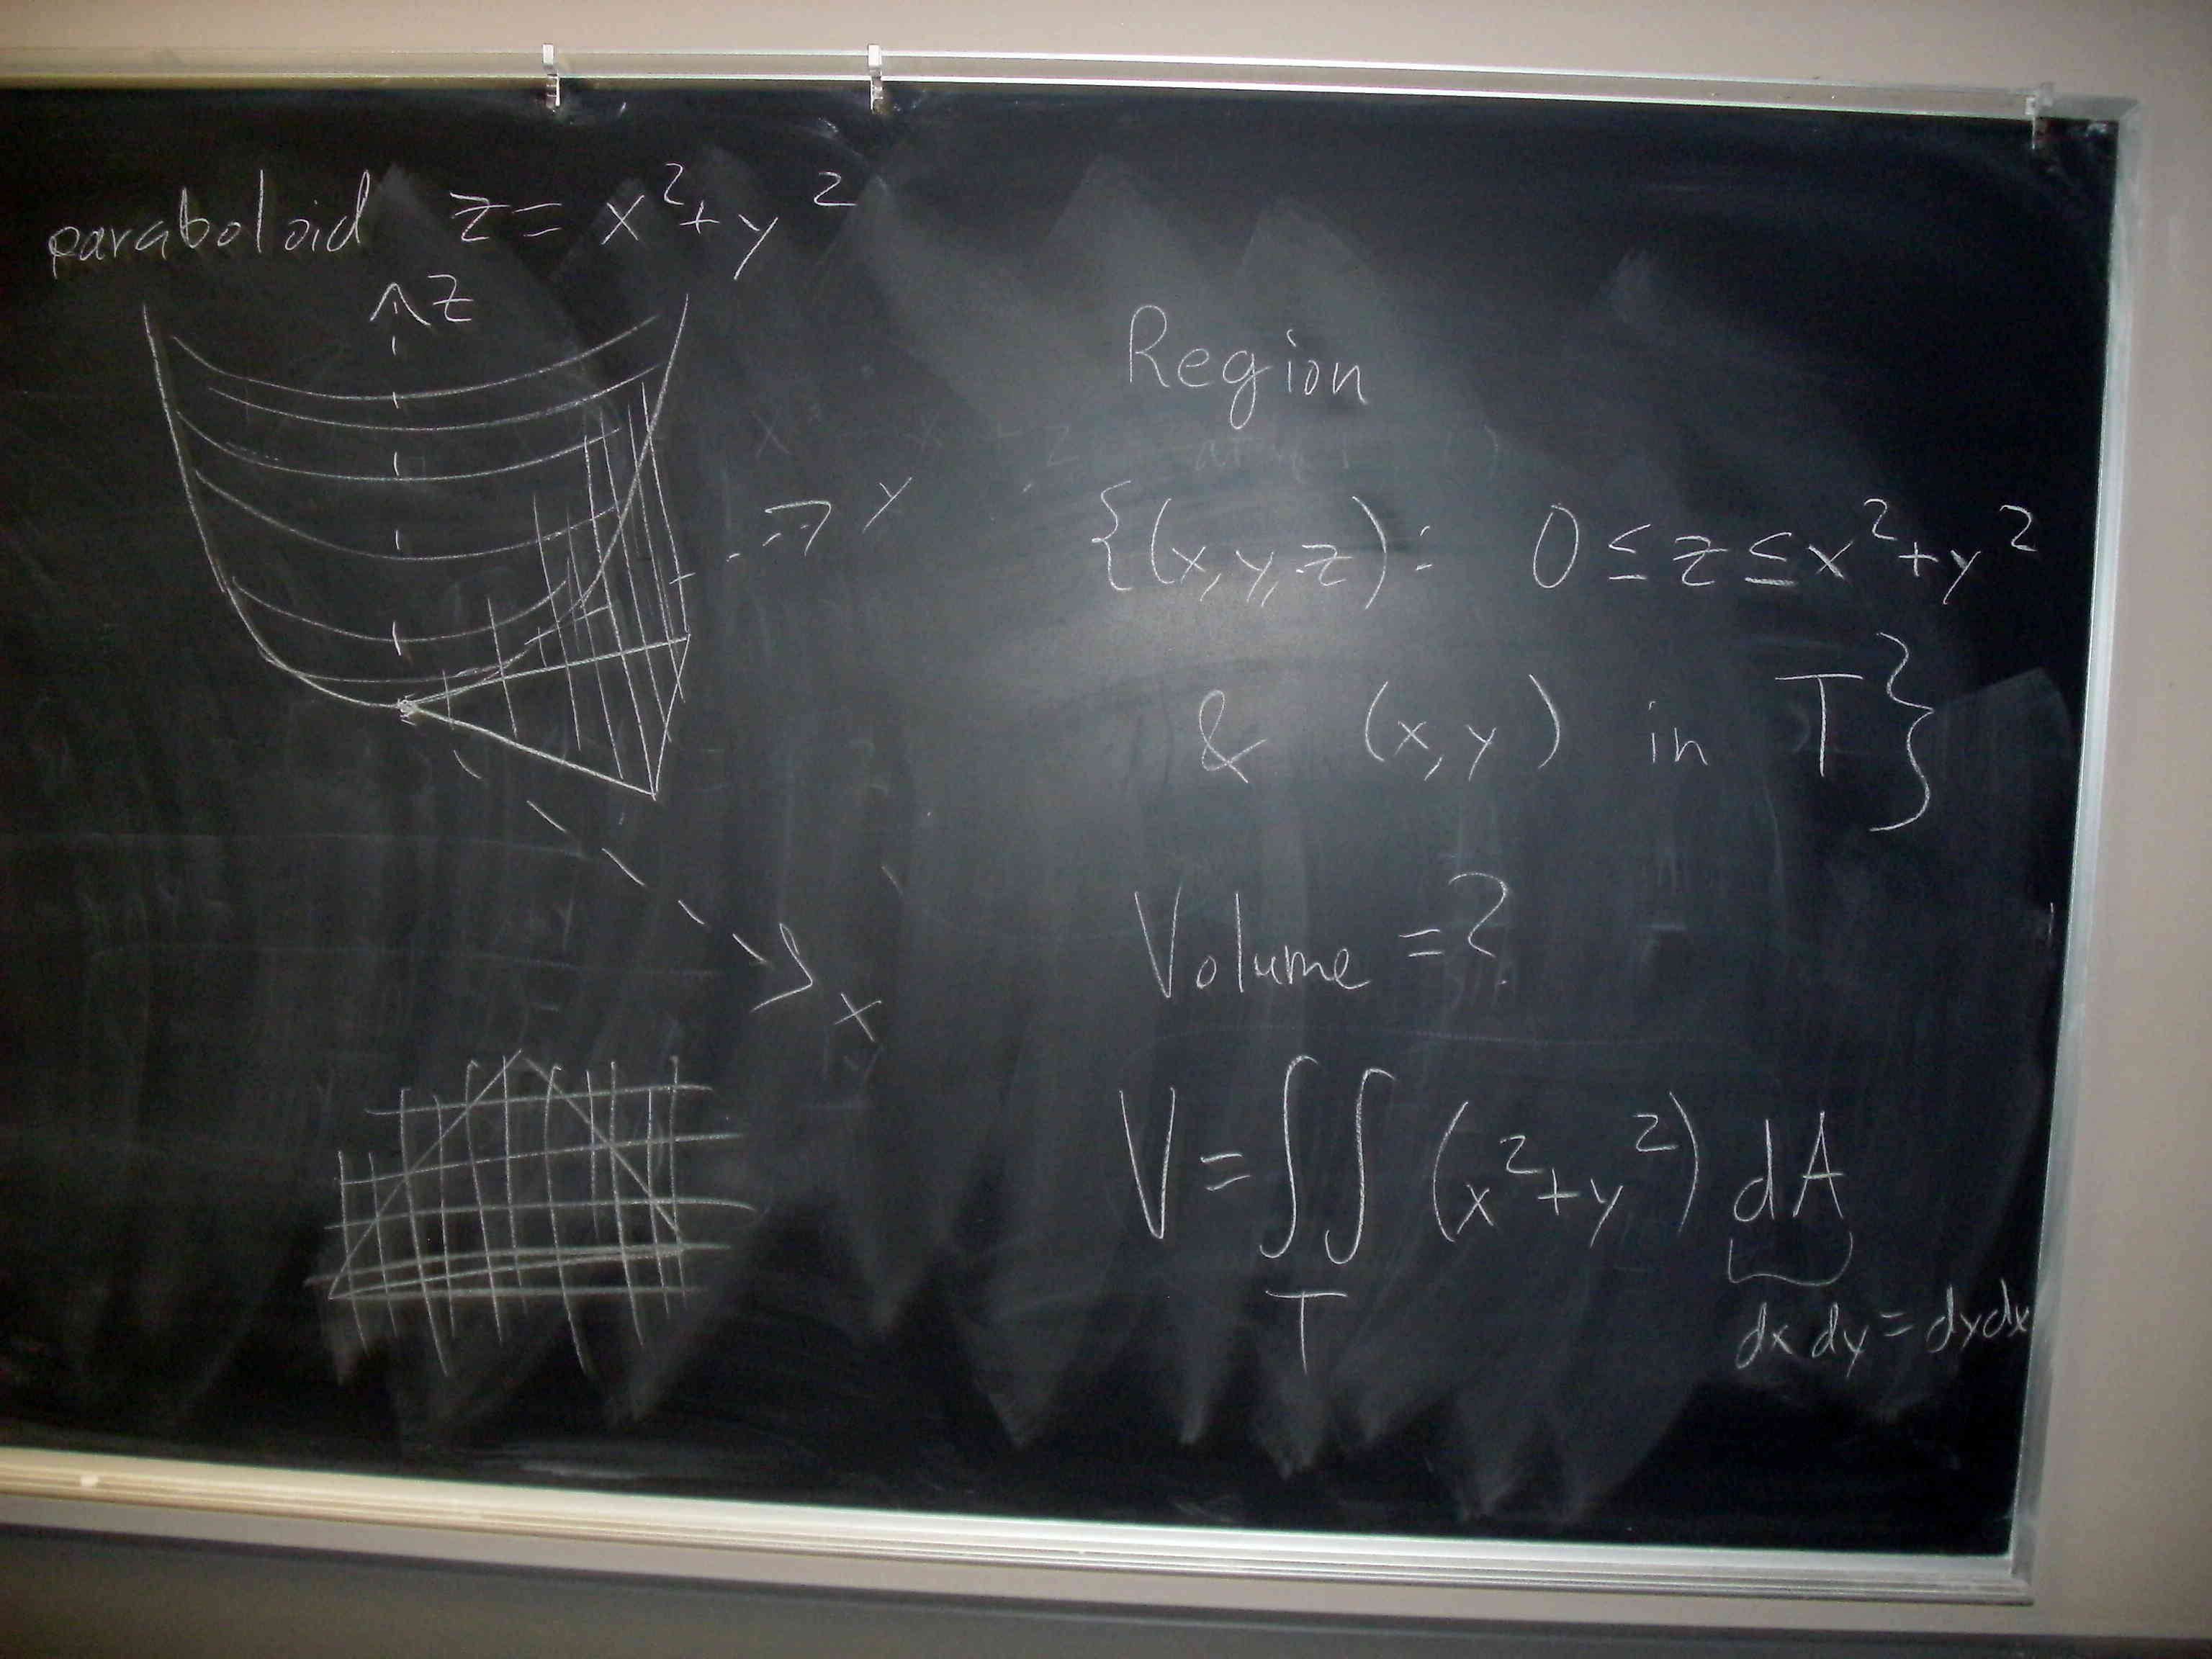 paraboloid z = x²+y²
z
y
x
Region
{(x,y,z): 0 ≤ z ≤ x²+y²
& (x,y) in T}
Volume = ?
V = ∬ (x²+y²) dA
T
dx dy = dy dx